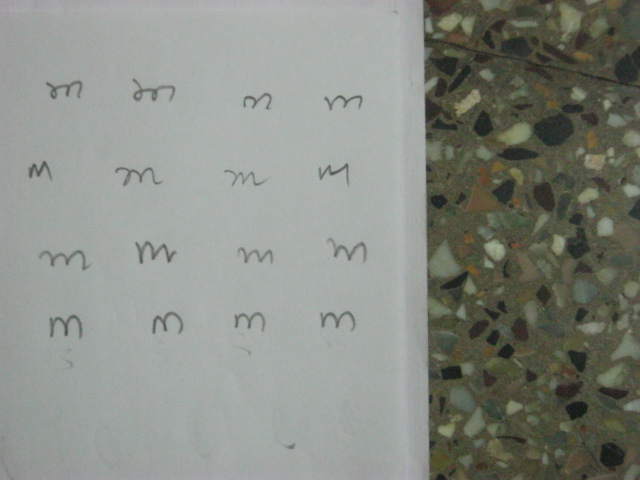 m m n m
m m m m
m m m m
m m m m